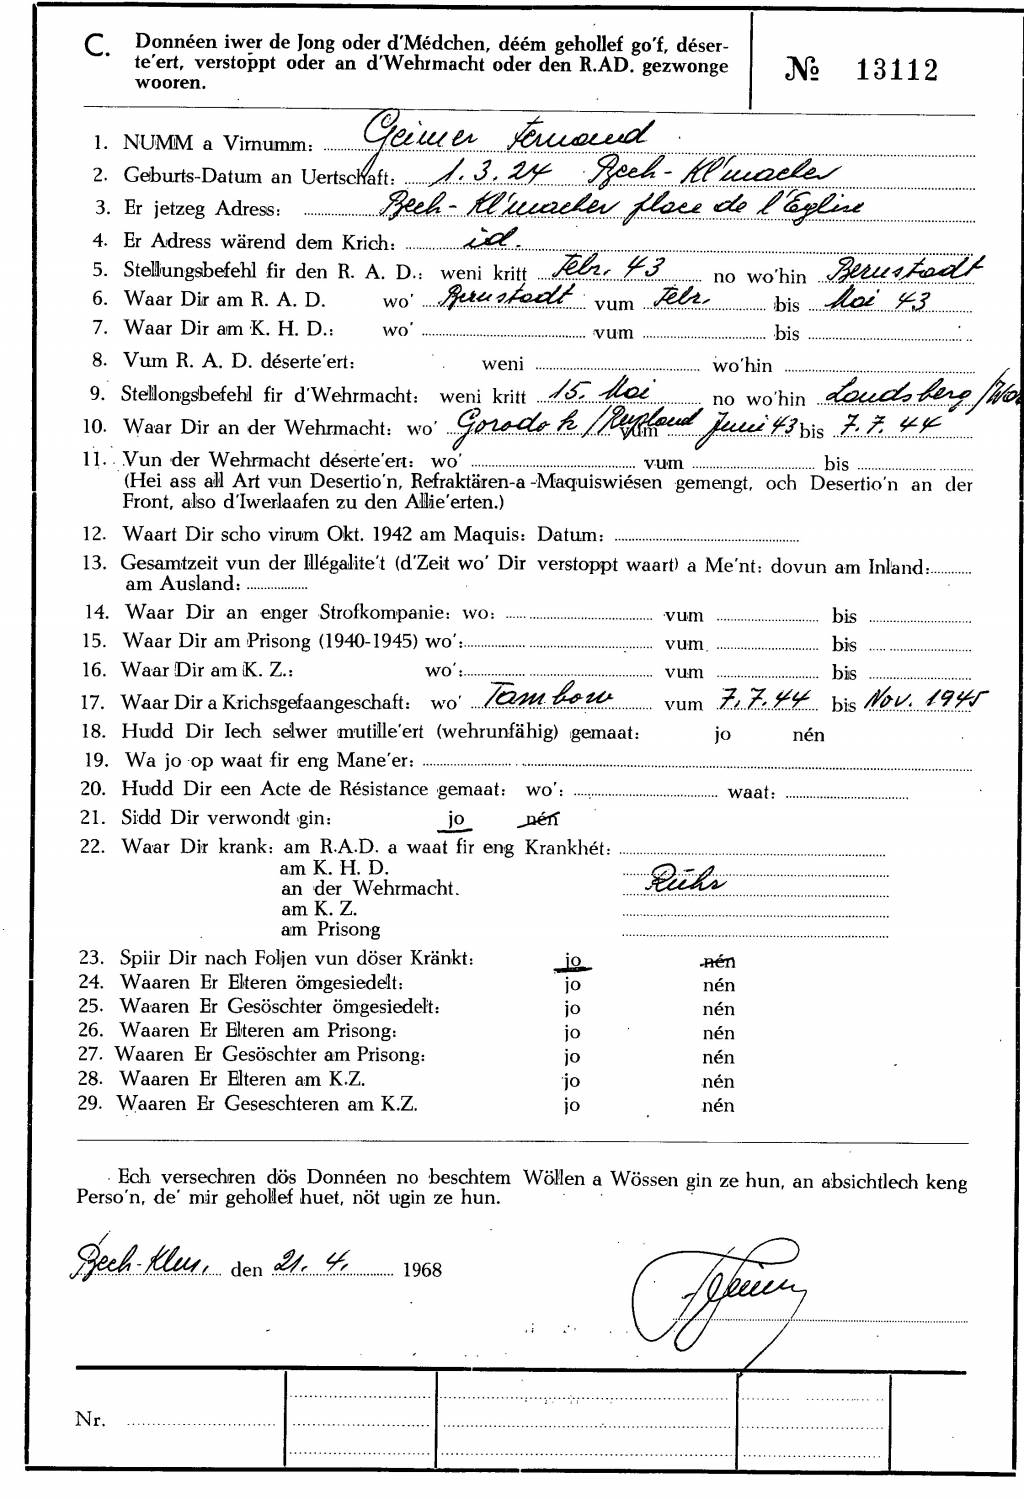 C. Donnéen iwer de Jong oder d'Médchen, déém gehollef go'f, déser-
te'ert, verstoppt oder an d'Wehrmacht oder den R.AD. gezwonge
wooren.
№ 13112
1. NUMM a Virnumm: Geimer Fernand
2. Geburts-Datum an Uertschaft: 1.3.24 Bech-Kl'macher
3. Er jetzeg Adress: Bech-Kl'macher place de l'Église
4. Er Adress wärend dem Krich: id.
5. Stellungsbefehl fir den R. A. D.: weni kritt Febr. 43 no wo'hin Bernstadt
6. Waar Dir am R. A. D. wo' Bernstadt vum Febr. bis Mai 43
7. Waar Dir am K. H. D.: wo' vum bis
8. Vum R. A. D. déserte'ert: weni wo'hin
9. Stellongsbefehl fir d'Wehrmacht: weni kritt 15. Mai no wo'hin Landsberg/War
10. Waar Dir an der Wehrmacht: wo' Gorodok/Rußland vum Juni 43 bis 7.7.44
11. Vun der Wehrmacht déserte'ert: wo' vum bis
(Hei ass all Art vun Desertio'n, Refraktären-a-Maquiswiésen gemengt, och Desertio'n an der
Front, also d'Iwerlaafen zu den Allie'erten.)
12. Waart Dir scho virum Okt. 1942 am Maquis: Datum:
13. Gesamtzeit vun der Illégalite't (d'Zeit wo' Dir verstoppt waart) a Me'nt: dovun am Inland:
am Ausland:
14. Waar Dir an enger Strofkompanie: wo: vum bis
15. Waar Dir am Prisong (1940-1945) wo': vum bis
16. Waar Dir am K. Z.: wo': vum bis
17. Waar Dir a Krichsgefaangeschaft: wo' Tambow vum 7.7.44 bis Nov. 1945
18. Hudd Dir Iech selwer mutille'ert (wehrunfähig) gemaat: jo nén
19. Wa jo op waat fir eng Mane'er:
20. Hudd Dir een Acte de Résistance gemaat: wo': waat:
21. Sidd Dir verwondt gin: jo nén
22. Waar Dir krank: am R.A.D. a waat fir eng Krankhét:
am K. H. D.
an der Wehrmacht. Ruhr
am K. Z.
am Prisong
23. Spiir Dir nach Foljen vun döser Kränkt: jo nén
24. Waaren Er Elteren ömgesiedelt: jo nén
25. Waaren Er Gesöschter ömgesiedelt: jo nén
26. Waaren Er Elteren am Prisong: jo nén
27. Waaren Er Gesöschter am Prisong: jo nén
28. Waaren Er Elteren am K.Z. jo nén
29. Waaren Er Geseschteren am K.Z. jo nén
Ech versechren dös Donnéen no beschtem Wöllen a Wössen gin ze hun, an absichtlech keng
Perso'n, de' mir gehollef huet, nöt ugin ze hun.
Bech-Klm., den 21.4. 1968
Nr.